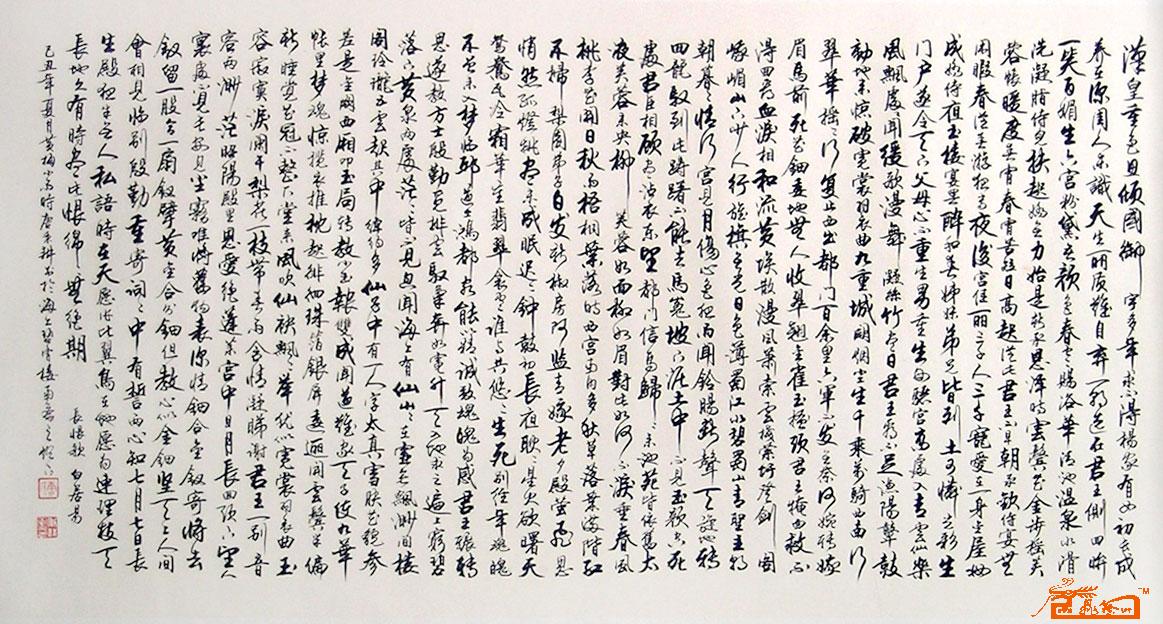 漢皇重色思傾國御宇多年求不得楊家有女初長成
養在深閨人未識天生麗質難自棄一朝選在君王側回眸
一笑百媚生六宮粉黛無顏色春寒賜浴華清池溫泉水滑
洗凝脂侍兒扶起嬌無力始是新承恩澤時雲鬢花金步搖芙
蓉帳暖度春宵春宵苦短日高起從此君王不早朝承歡侍宴無
閑暇春從春遊夜專夜後宮佳麗三千人三千寵愛在一身金屋妝
成嬌侍夜玉樓宴罷醉和春姊妹弟兄皆列土可憐光彩生
門戶遂令天下父母心不重生男重生女驪宮高處入青雲仙樂
風飄處處聞緩歌漫舞凝絲竹盡日君王看不足漁陽鼙鼓
動地來驚破霓裳羽衣曲九重城闕烟塵生千乘萬騎西南行
翠華搖搖行復止西出都門百余里六軍不發無奈何婉轉娥
眉馬前死花鈿委地無人收翠翹金雀玉搔頭君王掩面救不
得回看血淚相和流黃埃散漫風蕭索雲棧縈紆登劍閣
峨嵋山下少人行旌旗無光日色薄蜀江水碧蜀山青聖主朝
朝暮暮情行宮見月傷心色夜雨聞鈴腸斷聲天旋地轉
回龍馭到此躊躇不能去馬嵬坡下泥土中不見玉顏空死
處君臣相顧盡沾衣東望都門信馬歸歸來池苑皆依舊太
液芙蓉未央柳芙蓉如面柳如眉對此如何不淚垂春風
桃李花開日秋雨梧桐葉落時西宮南內多秋草落葉滿階紅
不掃梨園弟子白发新椒房阿監青娥老夕殿螢飛思
悄然孤燈挑盡未成眠遲遲鐘鼓初長夜耿耿星河欲曙天
鴛鴦瓦冷霜華重翡翠衾寒誰與共悠悠生死別經年魂魄
不曾來入夢臨邛道士鴻都客能以精誠致魂魄為感君王輾轉
思遂教方士殷勤覓排空馭氣奔如電升天入地求之遍上窮碧
落下黃泉兩處茫茫皆不見忽聞海上有仙山山在虛無縹緲間樓
閣玲瓏五雲起其中綽約多仙子中有一人字太真雪膚花貌參
差是金闕西廂叩玉扃轉教小玉報雙成聞道漢家天子使九華
帳里夢魂驚攬衣推枕起徘徊珠箔銀屏迤邐開雲鬢半偏
新睡覺花冠不整下堂來風吹仙袂飄飄舉猶似霓裳羽衣曲玉
容寂寞淚闌干梨花一枝帶春雨含情凝睇謝君王一別音
容兩渺茫昭陽殿里恩愛絕蓬萊宮中日月長回頭下望人
寰處不見長安見塵霧唯將舊物表深情鈿合金釵寄將去
釵留一股合一扇釵擘黃金合分鈿但教心似金鈿堅天上人間
會相見臨別殷勤重寄詞詞中有誓兩心知七月七日長
生殿夜半無人私語時在天願作比翼鳥在地願為連理枝天
長地久有時盡此恨綿綿無絕期
長恨歌 白居易
己丑年夏月黃梅小雨時